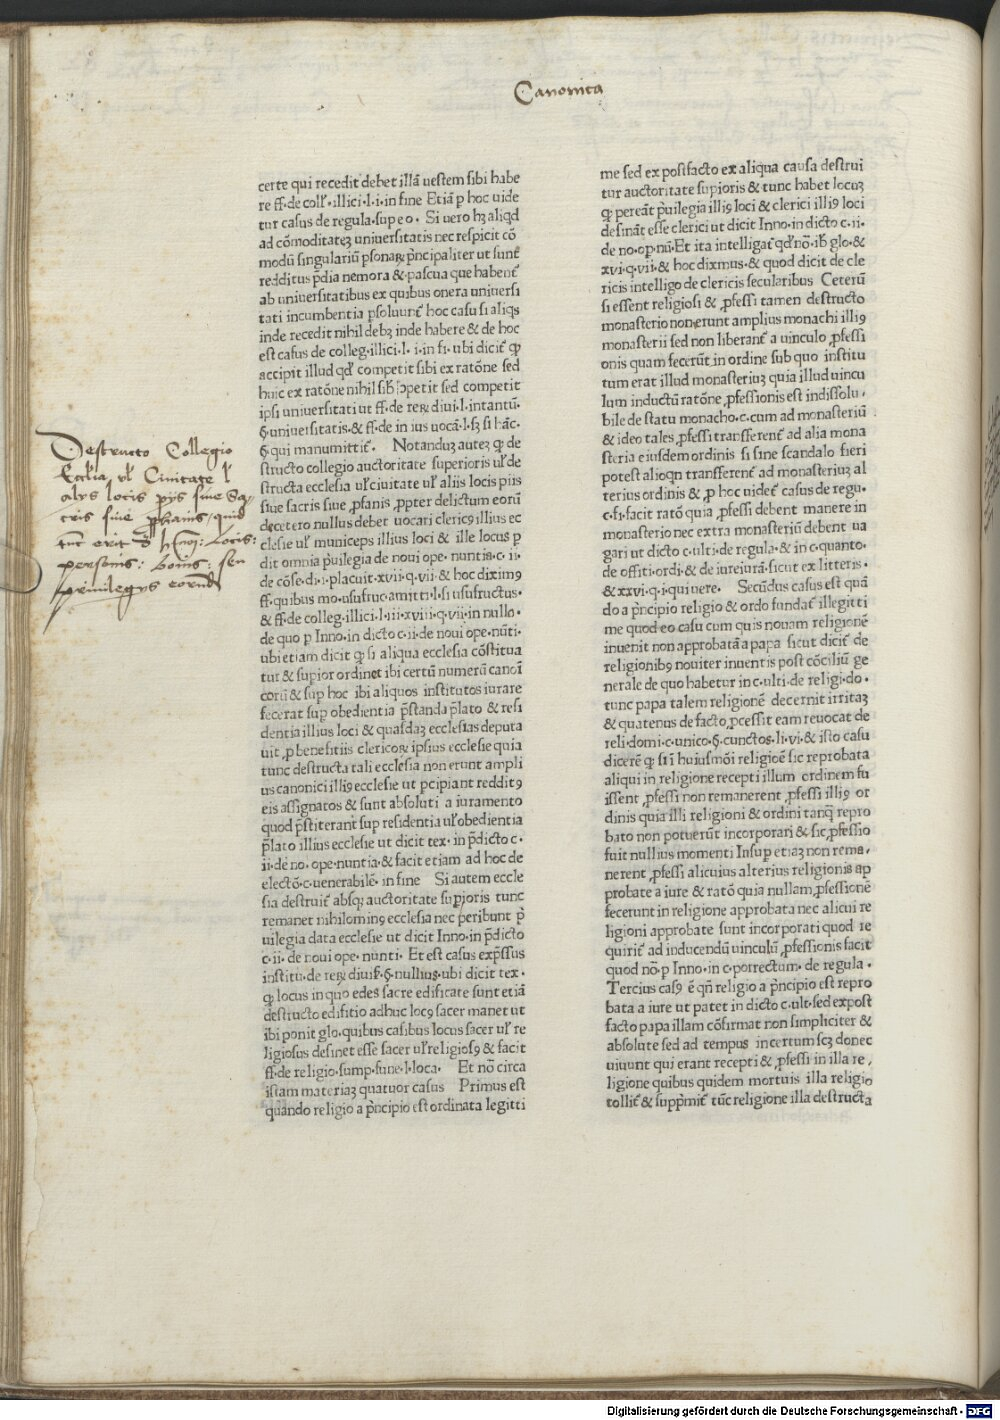 Canonica
certe qui recedit debet illā uestem sibi habe
re ff·de coll'·illici·l·i·in fine Etiā p hoc uide
tur casus de regula·sup eo· Si uero hȝ aliqd
ad cōmoditateȝ uniuersitatis nec respicit cō
modū singulariū psonaꝝ pncipaliter ut sunt
redditus pdia nemora & pascua que habent
ab uniuersitatibus ex quibus onera uniuersi
tati incumbentia psoluunt hoc casu si aliqs
inde recedit nihil debȝ inde habere & de hoc
est casus de colleg·illici·l·i·in fi·ubi dicit ꝙ
accipit illud qd competit sibi ex ratōne sed
huic ex ratōne nihil sibi ↄpetit sed competit
ipsi uniuersitati ut ff·de reꝝ diui·l·intantū·
§·uniuersitatis·& ff·de in ius uocā·l·sȝ si hāc·
§·qui manumittit· Notanduȝ auteȝ ꝙ de
structo collegio auctoritate superioris ul' de
structa ecclesia ul' ciuitate ul' aliis locis piis
siue sacris siue ꝓfanis ꝓpter delictum eorū
decetero nullus debet uocari clericꝰ illius ec
clesie ul' municeps illius loci & ille locus p
dit omnia p̄uilegia de noui ope·nuntia·c·ii·
de cōse·di·i·placuit·xvii·q·vii·& hoc diximꝰ
ff·quibus mo·usufruc·amitti·l·si usufructus·
& ff·de colleg·illici·l·iii·xviii·q·vii·in nullo·
de quo p Inno·in dicto c·ii·de noui ope·nūti·
ubi etiam dicit ꝙ si aliqua ecclesia cōstitua
tur & supior ordinet ibi certū numerū canoī
corū & sup hoc ibi aliquos institutos iurare
fecerat sup obedientia p̄standa p̄lato & resi
dentia illius loci & quasdaȝ ecclesias deputa
uit ꝓ benefitiis clericoꝝ ipsius ecclesie quia
tunc destructa tali ecclesia non erunt ampli
us canonici illiꝰ ecclesie ut pcipiant redditꝰ
eis assignatos & sunt absoluti a iuramento
quod p̄stiterant sup residentia ul' obedientia
p̄lato illius ecclesie ut dicit tex·in p̄dicto c·
ii·de no·ope·nuntia·& facit etiam ad hoc de
electō·c·venerabilē·in fine Si autem eccle
sia destruit absqȝ auctoritate supioris tunc
remanet nihilominꝰ ecclesia nec peribunt p̄
uilegia data ecclesie ut dicit Inno·in p̄dicto
c·ii·de noui ope·nunti· Et est casus exp̄ssus
institu·de reꝝ diuis·§·nullius·ubi dicit tex·
ꝙ locus in quo edes sacre edificate sunt etiā
destructo edifitio adhuc locꝰ sacer manet ut
ibi ponit glo·quibus casibus locus sacer ul' re
ligiosus desinet esse sacer ul' religiosꝰ & facit
ff·de religio·sump·fune·l·loca· Et nō circa
istam materiaȝ quatuor casus Primus est
quando religio a p̄ncipio est ordinata legitti
me sed ex postfacto ex aliqua causa destrui
tur auctoritate supioris & tunc habet locuȝ
ꝙ pereāt p̄uilegia illiꝰ loci & clerici illiꝰ loci
desināt esse clerici ut dicit Inno·in dicto c·ii·
de no·op·nū·Et ita intelligat qd' nō·ib' glo·&
xvi·q·vii·& hoc diximus·& quod dicit de cle
ricis intelligo de clericis secularibus Ceterū
si essent religiosi & ꝓfessi tamen destructo
monasterio non erunt amplius monachi illiꝰ
monasterii sed non liberant a uinculo ꝓfessi
onis quam fecerūt in ordine sub quo institu
tum erat illud monasteriuȝ quia illud uincu
lum inductū ratōne ꝓfessionis est indissolu·
bile de statu monacho·c·cum ad monasteriū
& ideo tales ꝓfessi transferent ad alia mona
steria eiusdem ordinis si sine scandalo fieri
potest alioqn transferent ad monasteriuȝ al
terius ordinis & ꝓ hoc uidet casus de regu·
c·fi·facit ratō quia ꝓfessi debent manere in
monasterio nec extra monasteriū debent ua
gari ut dicto c·ulti·de regula·& in c·quanto·
de offiti·ordi·& de iureiurā·sicut ex litteris·
& xxvi·q·i·qui uere· Secūdus casus est quā
do a p̄ncipio religio & ordo fundat illegitti
me quod eo casu cum quis nouam religionē
inuenit non approbatā a papa sicut dicit de
religionibꝰ nouiter inuentis post cōciliū ge
nerale de quo habetur in c·ulti·de religi·do·
tunc papa talem religionē decernit irritaȝ
& quatenus de facto ꝓcessit eam reuocat de
reli·domi·c·unico·§·cunctos·li·vi·& isto casu
dicerē ꝙ si ī huiusmōi religioē sic reprobata
aliqui in religione recepti illum ordinem fu
issent ꝓfessi non remanerent ꝓfessi illiꝰ or
dinis quia illi religioni & ordini tanqȝ repro
bato non potuerūt incorporari & sic ꝓfessio
fuit nullius momenti Insup etiaȝ non rema·
nerent ꝓfessi alicuius alterius religionis ap
probate a iure & ratō quia nullam ꝓfessionē
fecerunt in religione approbata nec alicui re
ligioni approbate sunt incorporati quod re
quirit ad inducendū uinculū ꝓfessionis facit
quod nō·p Inno·in c·porrectum·de regula·
Tercius casꝰ ē qn̄ religio a p̄ncipio est repro
bata a iure ut patet in dicto c·ult·sed ex post
facto papa illam cōfirmat non simpliciter &
absolute sed ad tempus incertum scȝ donec
uiuunt qui erant recepti & ꝓfessi in illa re·
ligione quibus quidem mortuis illa religio
tollit & supp̄mit tūc religione illa destructa
Destructo Collegio
Eccl'ia ul' Ciuitate l'
alys locis pys siue Sa
cris siue prophanis, quid
tunc erit
personis: bonis: seu
priuilegys eorund
Digitalisierung gefördert durch die Deutsche Forschungsgemeinschaft - DFG